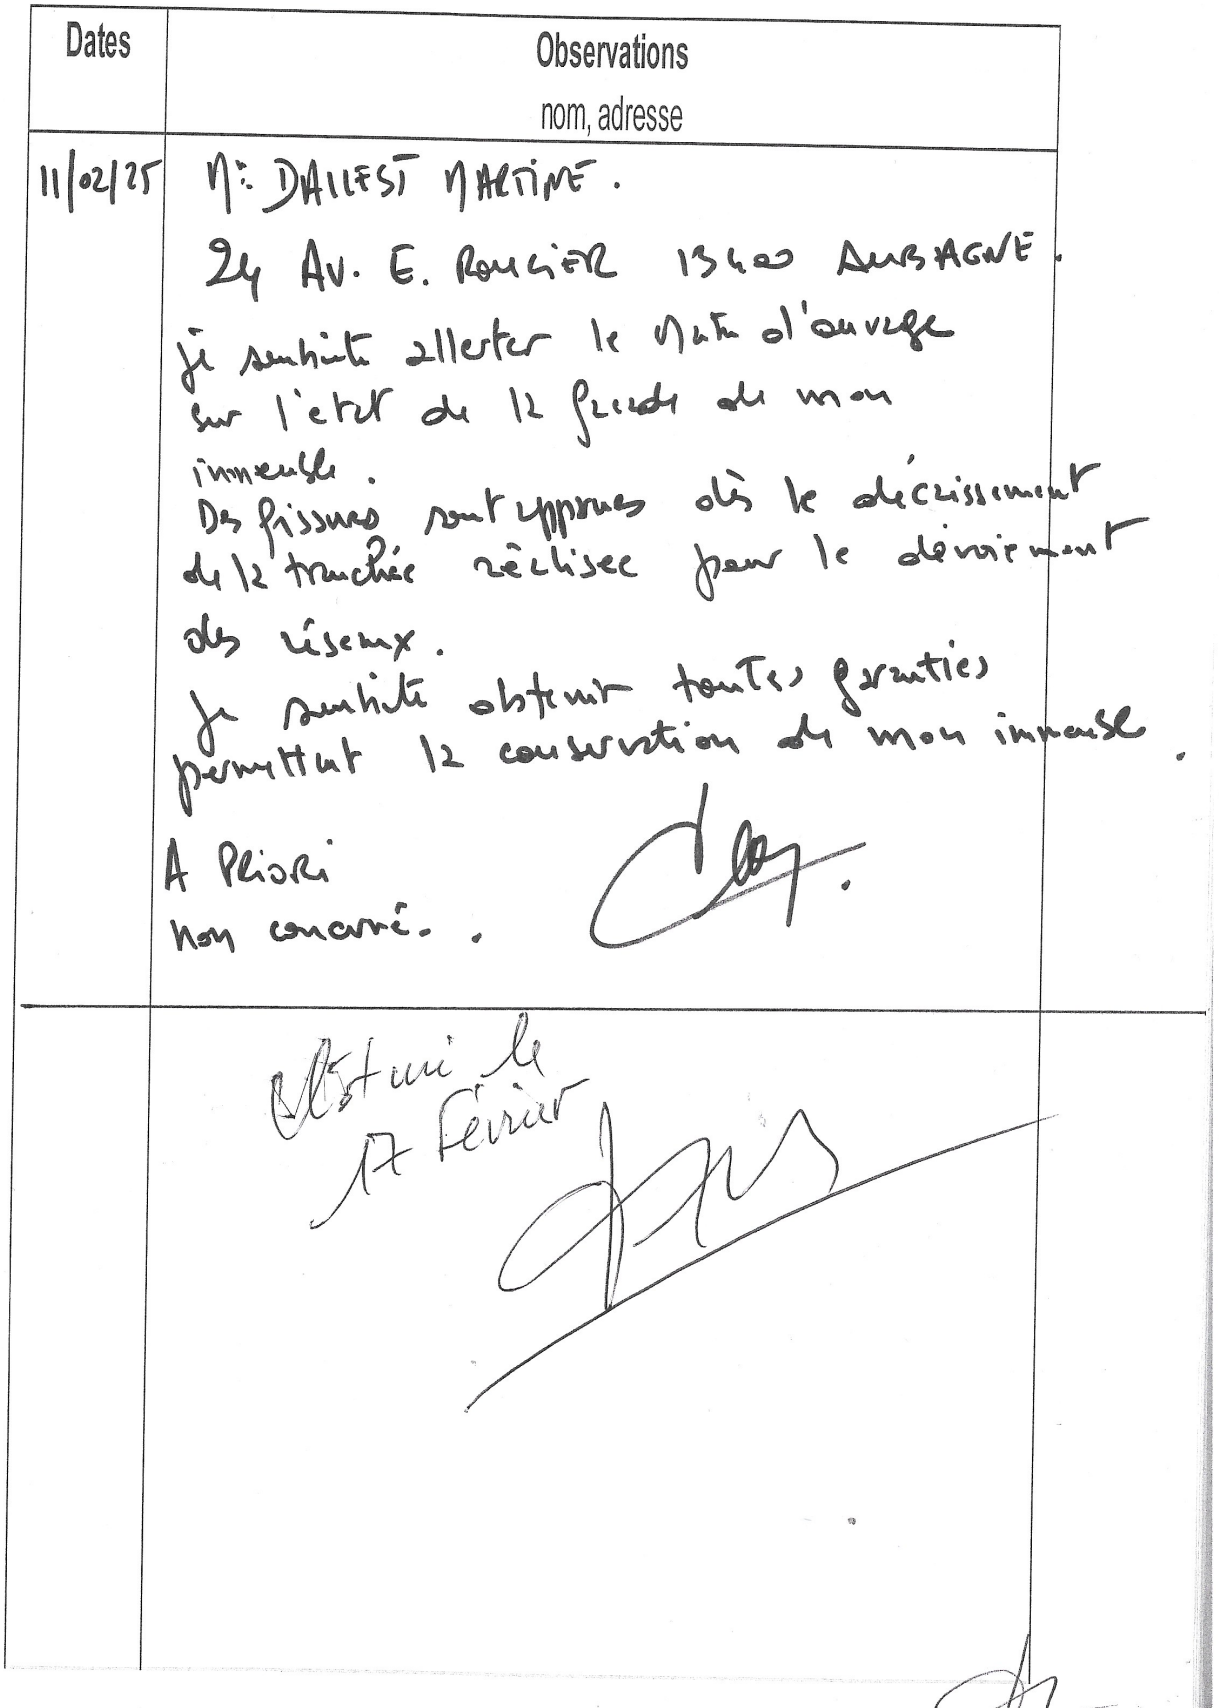 Dates
Observations
nom, adresse
11/02/25
Me DALLEST MARTINE.
24 Av. E. ROUGIER 13400 AUBAGNE.
je souhaite allerter le Maitre d'ouvrage
sur l'etat de la facade de mon
immeuble.
Des fissures sont apparues dès le décaissement
de la tranchée réalisée pour le dévoiement
des réseaux.
Je souhaite obtenir toutes garanties
permettant la conservation de mon immeuble.
A PRIORI
non concerné.
Clôturé le
17 Février